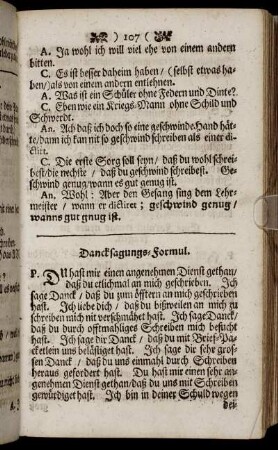 ) 107 (
A. Ja wohl ich will viel ehe von einem andern
bitten.
C. Es ist besser daheim haben / (selbst etwas ha-
ben/) als von einem andern entlehnen.
A. Was ist ein Schüler ohne Federn und Dinte?
C. Eben wie ein Kriegs-Mann ohne Schild und
Schwerdt.
An. Ach daß ich doch so eine geschwinde Hand hät-
te/ dann ich kan nit so geschwind schreiben als einer di-
ctirt.
C. Die erste Sorg soll seyn/ daß du wohl schrei-
best/ die nechste / daß du geschwind schreibest. Ge-
schwind genug/wann es gut genug ist.
An. Wohl: Aber den Gesang sing dem Lehr-
meister / wann er dictirt; geschwind genug/
wanns gut gnug ist.
Dancksagungs-Formul.
P. DU hast mir einen angenehmen Dienst gethan/
daß du etlichmal an mich geschrieben. Ich
sage Danck / daß du zum öfftern an mich geschrieben
hast. Ich liebe dich / daß du bißweilen an mich zu
schreiben mich nit verschmähet hast. Ich sage Danck/
daß du durch offtmahliges Schreiben mich besucht
hast. Ich sage dir Danck / daß du mit Brief-Pa-
cketlein uns belästiget hast. Ich sage dir sehr gros-
sen Danck / daß du uns einmahl durch Schreiben
heraus gefordert hast. Du hast mir einen sehr an-
genehmen Dienst gethan/daß du uns mit Schreiben
gewürdiget hast. Ich bin in deiner Schuld wegen